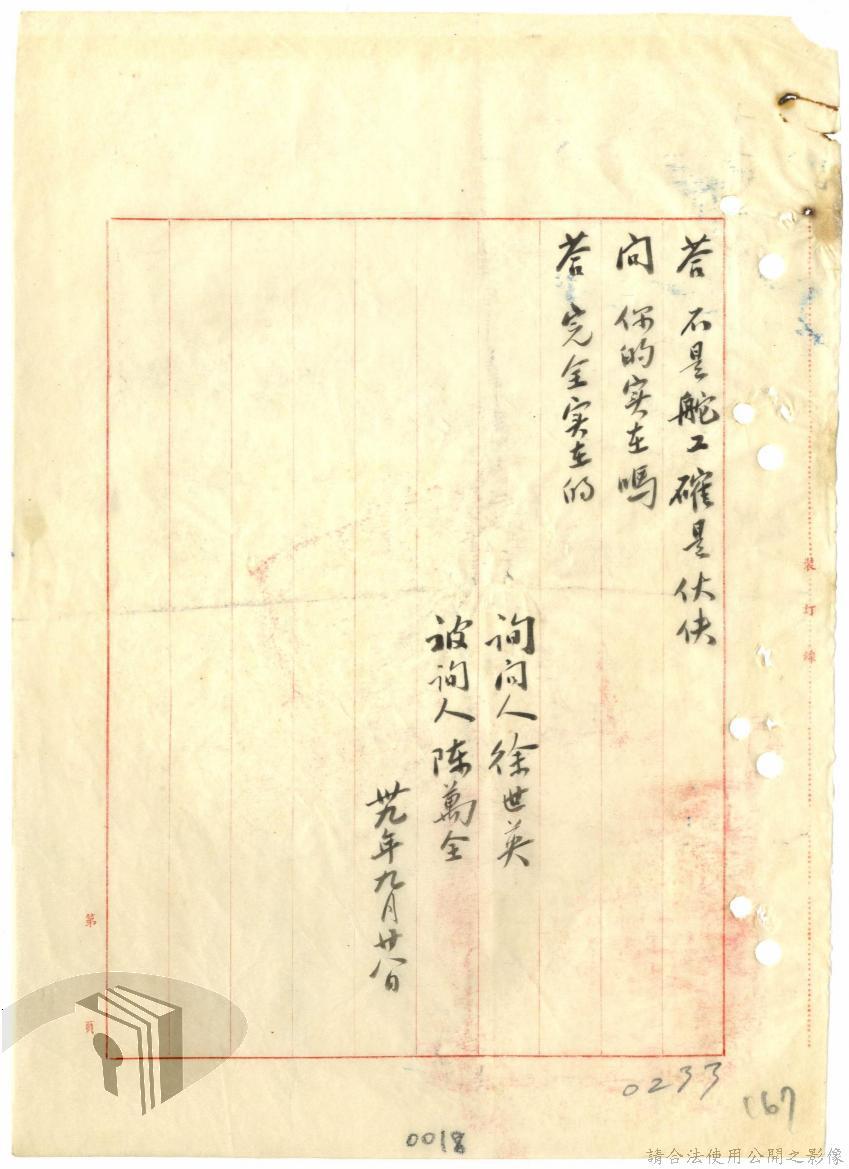 荅 不是舵工確是伙伕
问 你的实在嗎
荅 完全实在的
询问人 徐世英
被询人 陈萬全
卅九年九月廿八日
装订線
第 頁
0233
167
0018
請合法使用公開之影像